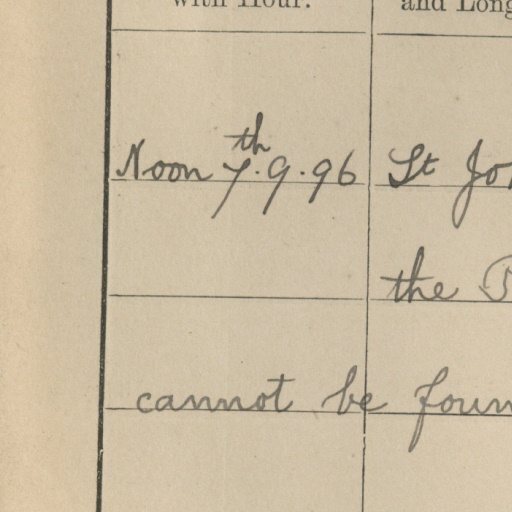 with Hour. and Long
Noon 7th.9.96 St Jo
the
cannot be foun